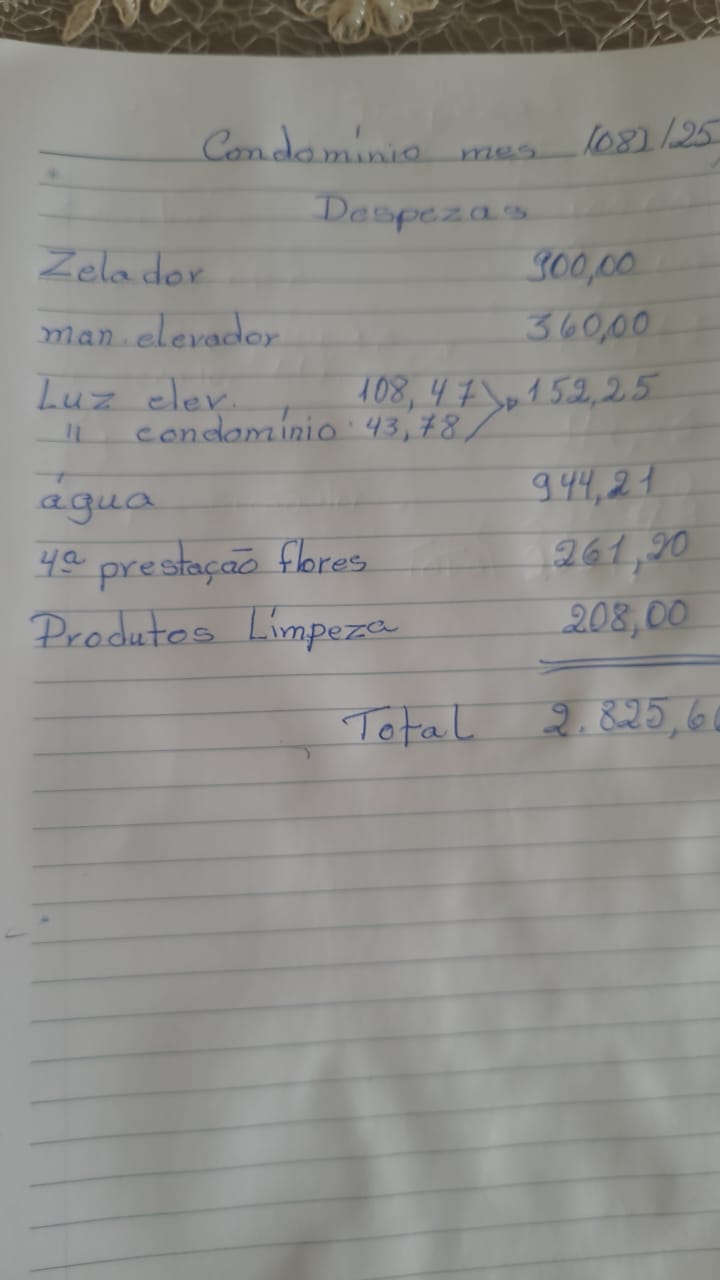 Condomínio mes (08)/25
Despezas
Zelador 900,00
man. elevador 360,00
Luz elev. 108,47 152,25
" condomínio 43,78
água 944,21
4ª prestação flores 261,20
Produtos Límpeza 208,00
Total 2.825,6